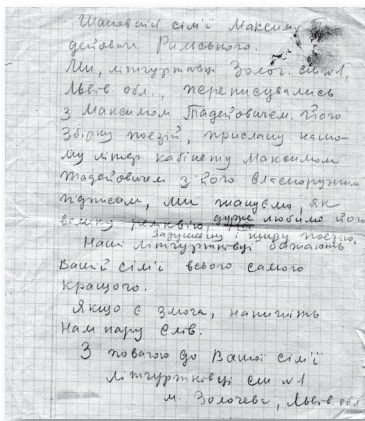 Шановній сім'ї Максима Та-
дейовича Рильського.
Ми, літгуртківці Золоч. СШ №1,
Львів обл., переписувались
з Максимом Тадейовичем. Його
збірку поезій, прислану нашо-
му літер кабінету Максимом
Тадейовичем з його власноручним
підписом, ми шануємо, як
велику реліквію, дуже любимо його
задушевну і щиру поезію.
Наші літгуртківці бажають
Вашій сім'ї всього самого
кращого.
Якщо є змога, напишіть
нам пару слів.
З повагою до Вашої сім'ї
літгуртківці СШ №1
м. Золочева, Львів обл